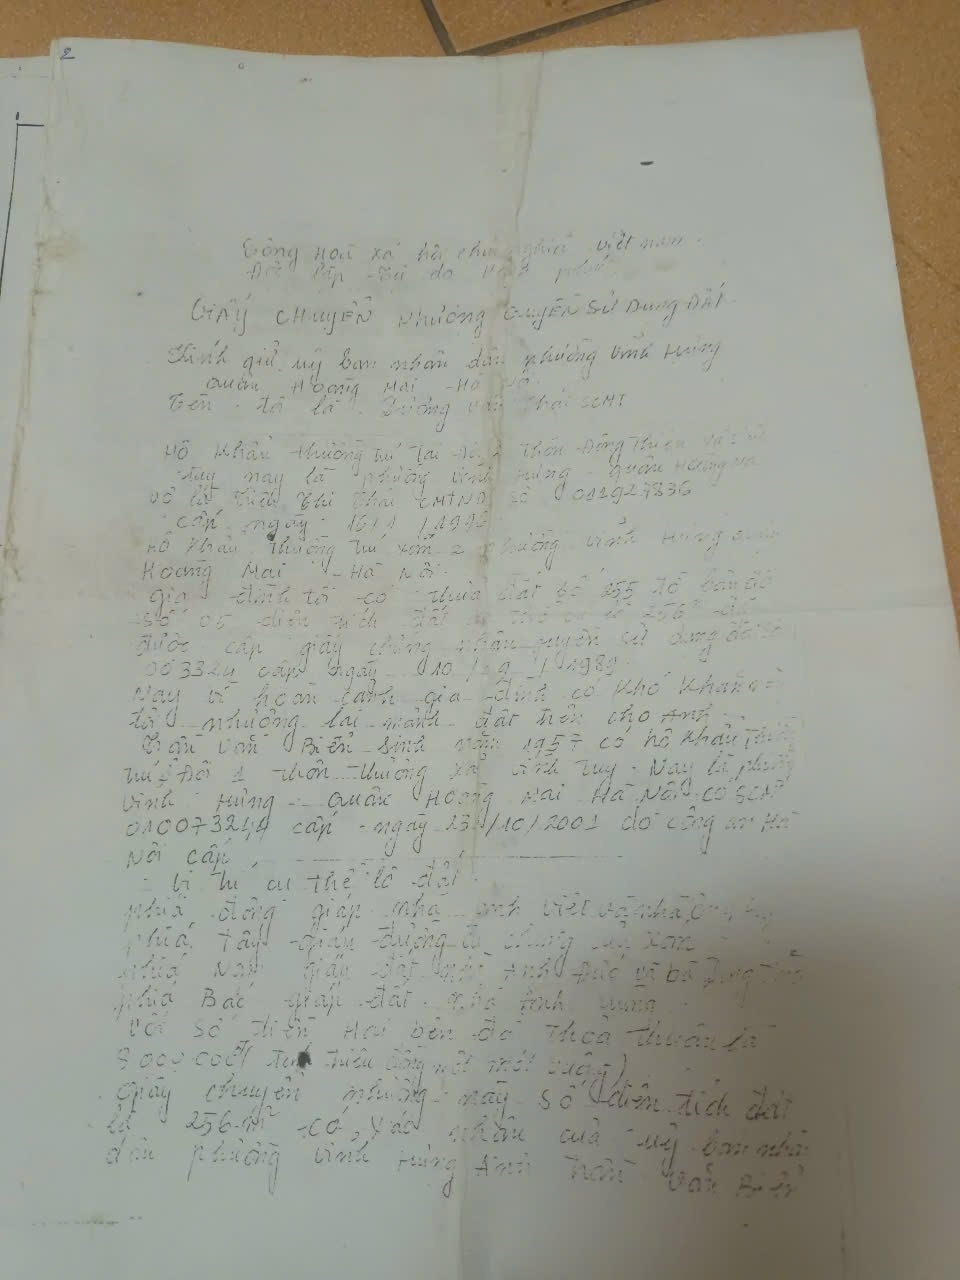 2
Cộng Hoà xã hội chủ nghĩa việt nam
Độc lập - Tự do phúc
GIẤY CHUYỂN NHƯỢNG QUYỀN SỬ DỤNG ĐẤT
Kính gửi uỷ ban nhân dân phường Vĩnh Hưng
quận Hoàng Mai - Hà Nội
Tên tôi là Dương Văn SCMT
Hộ khẩu thường trú tại Thôn Đông Thiên
tuy nay là phường Vĩnh Hưng - quận Hoàng Mai
Vợ là Thị CMTND Số 011927836
cấp ngày 16/1/1996
Hộ khẩu thường trú xóm 2 phường Vĩnh Hưng quận
Hoàng Mai - Hà Nội
gia đình tôi có thửa đất số 255 tờ bản đồ
số 05 diện tích đất là 256
được cấp giấy chứng nhận quyền sử dụng đất số
003324 cấp ngày 10/ /1989
Nay vì hoàn cảnh gia đình có khó khăn
tôi nhượng lại mảnh đất trên cho Anh
Trần Văn Biển Sinh năm 1957 có hộ khẩu thường
trú Đội 1 thôn thượng xã Vĩnh Tuy. Nay là phường
Vĩnh Hưng - quận Hoàng Mai Hà Nội có SCMT
010073244 cấp ngày 23/10/2001 do công an Hà
Nội cấp
Vị trí cụ thể lô đất
phía đông giáp nhà anh Việt và nhà
phía tây giáp đường đi chung của xóm
phía Nam giáp đất nhà Anh Đức và bà
phía Bắc giáp đất nhà Anh
Với số tiền Hai bên đã Thoả thuận là
8000.000đ triệu đồng một mét vuông)
Giấy chuyển nhượng này số diện tích đất
là 256 m² có xác nhận của uỷ ban nhân
dân phường Vĩnh Hưng Anh Trần Văn Biển